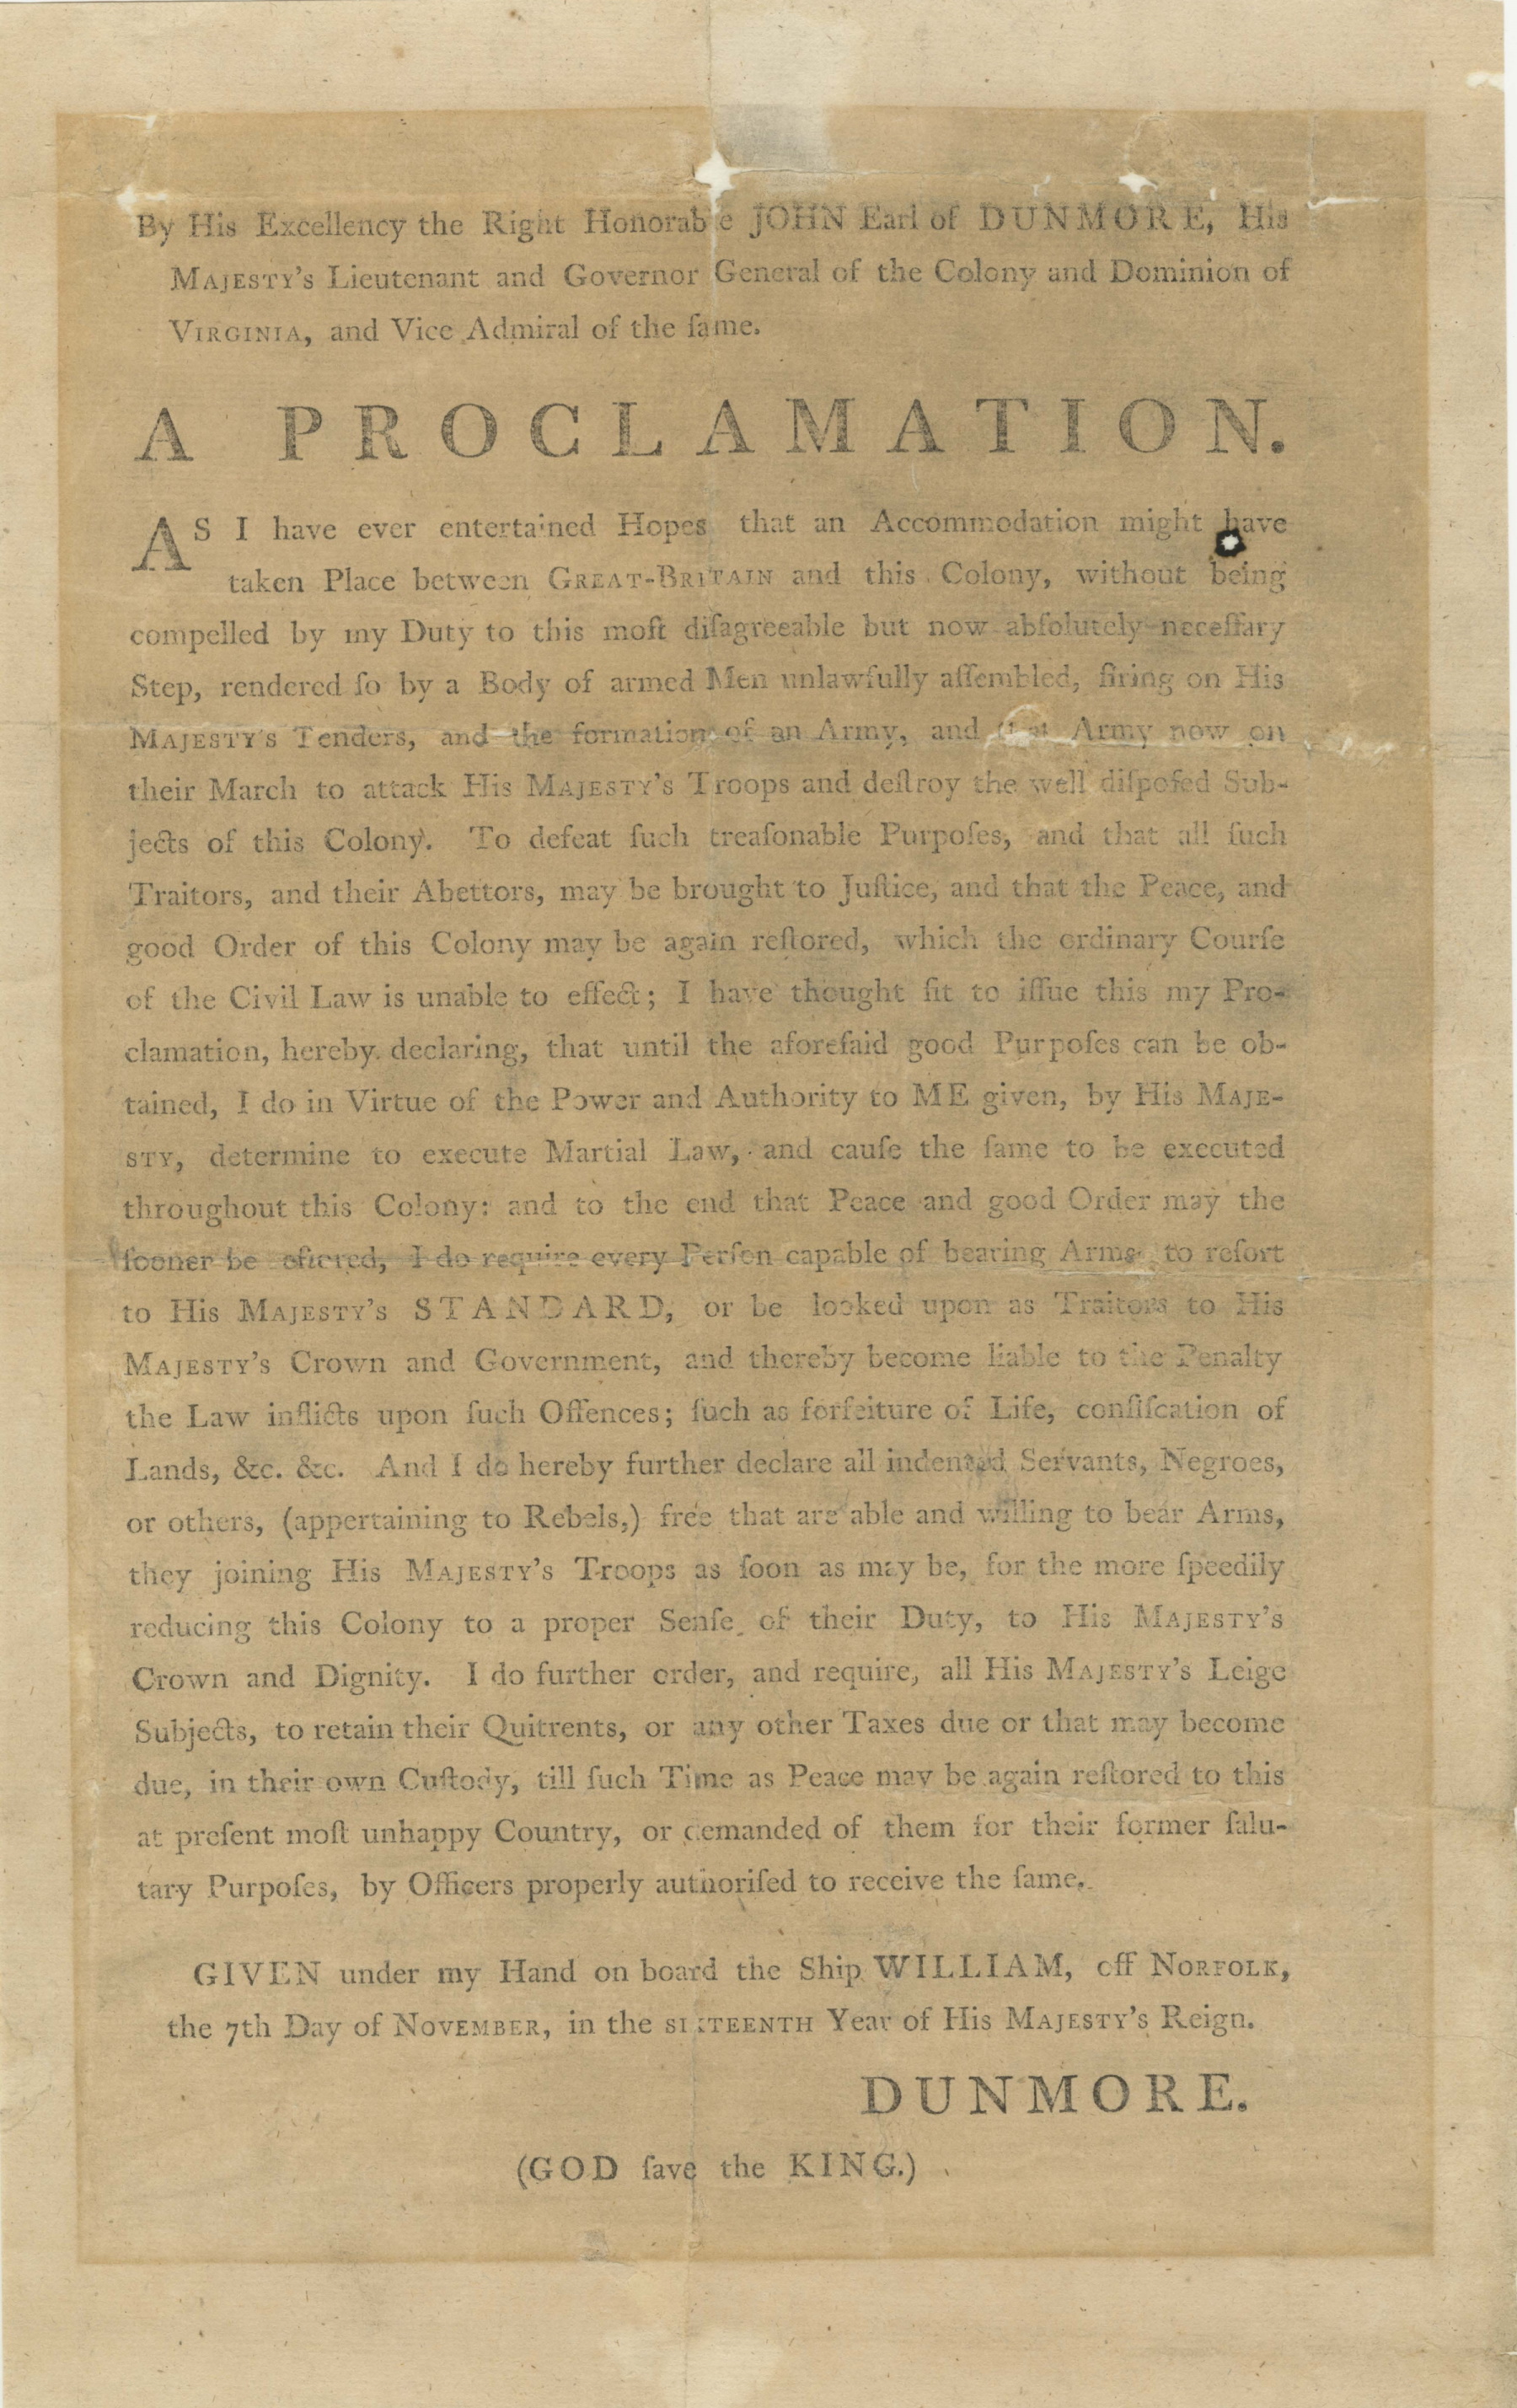 By His Excellency the Right Honorable JOHN Earl of DUNMORE, His
MAJESTY'S Lieutenant and Governor General of the Colony and Dominion of
VIRGINIA, and Vice Admiral of the ſame.
A PROCLAMATION.
AS I have ever entertained Hopes that an Accommodation might have
taken Place between GREAT-BRITAIN and this Colony, without being
compelled by my Duty to this moſt diſagreeable but now abſolutely neceſſary
Step, rendered ſo by a Body of armed Men unlawfully aſſembled, firing on His
MAJESTY'S Tenders, and the formation of an Army, and that Army now on
their March to attack His MAJESTY'S Troops and deſtroy the well diſpoſed Sub-
jects of this Colony. To defeat ſuch treaſonable Purpoſes, and that all ſuch
Traitors, and their Abettors, may be brought to Juſtice, and that the Peace, and
good Order of this Colony may be again reſtored, which the ordinary Courſe
of the Civil Law is unable to effect; I have thought fit to iſſue this my Pro-
clamation, hereby declaring, that until the aforeſaid good Purpoſes can be ob-
tained, I do in Virtue of the Power and Authority to ME given, by His MAJE-
STY, determine to execute Martial Law, and cauſe the ſame to be executed
throughout this Colony: and to the end that Peace and good Order may the
ſooner be reſtored, I do require every Perſon capable of bearing Arms, to reſort
to His MAJESTY'S STANDARD, or be looked upon as Traitors to His
MAJESTY'S Crown and Government, and thereby become liable to the Penalty
the Law inflicts upon ſuch Offences; ſuch as forfeiture of Life, confiſcation of
Lands, &c. &c. And I do hereby further declare all indented Servants, Negroes,
or others, (appertaining to Rebels,) free that are able and willing to bear Arms,
they joining His MAJESTY'S Troops as ſoon as may be, for the more ſpeedily
reducing this Colony to a proper Senſe of their Duty, to His MAJESTY'S
Crown and Dignity. I do further order, and require, all His MAJESTY'S Leige
Subjects, to retain their Quitrents, or any other Taxes due or that may become
due, in their own Cuſtody, till ſuch Time as Peace may be again reſtored to this
at preſent moſt unhappy Country, or demanded of them for their former ſalu-
tary Purpoſes, by Officers properly authoriſed to receive the ſame.
GIVEN under my Hand on board the Ship WILLIAM, off NORFOLK,
the 7th Day of NOVEMBER, in the SIXTEENTH Year of His MAJESTY'S Reign.
DUNMORE.
(GOD ſave the KING.)